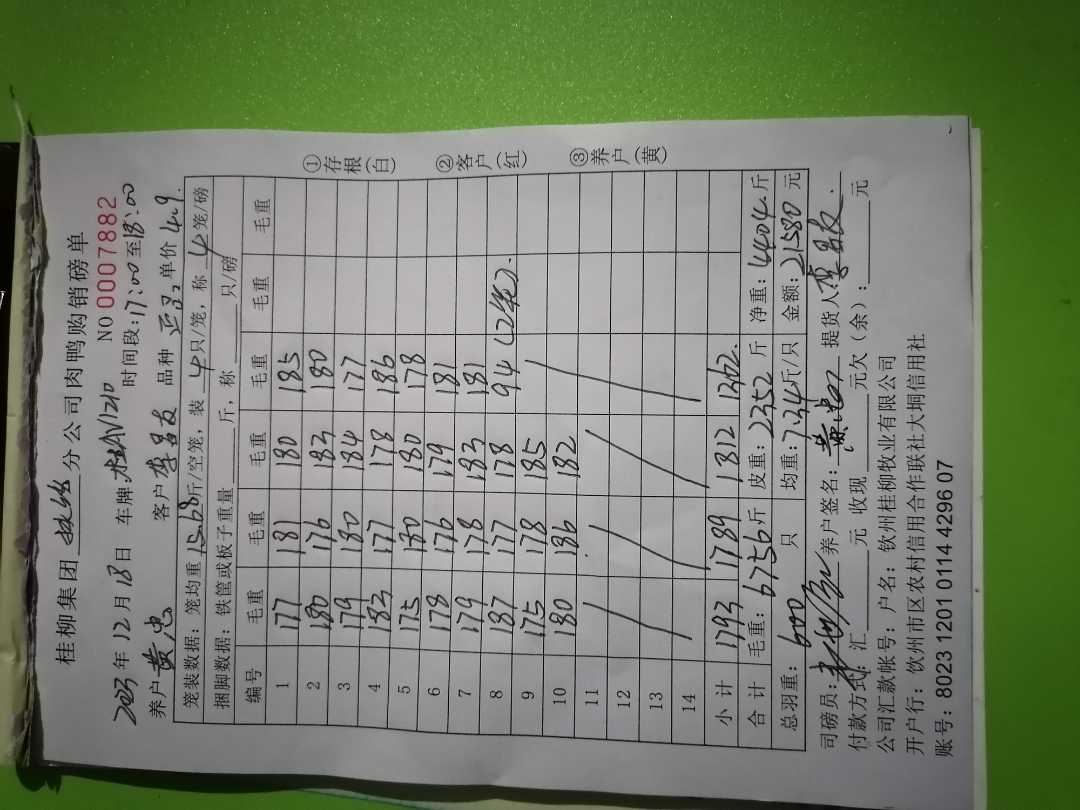 桂柳集团 分公司肉鸭购销磅单
NO 0007882
2023年12月18日 车牌 桂AV1210 时间段:17:00至18:00
养户 黄忠 客户 李昌友 品种 单价 4.9
笼装数据:笼均重 15.68斤/空笼,装 4只/笼,称 4笼/磅
捆脚数据:铁筐或板子重量 斤,称 只/磅
编号 毛重 毛重 毛重 毛重 毛重 毛重
1 177 181 180 185
2 180 176 183 180
3 179 180 184 177
4 183 177 178 186
5 175 180 180 178
6 178 176 179 181
7 179 178 183 181
8 187 177 178 94(2笼).
9 175 178 185
10 180 186 182
11
12
13
14
小计 1793 1789 1812 1362.
合计 毛重:6756斤 皮重:2352斤 净重:4404斤
总羽重:600只 均重:7.34斤/只 金额:21580元
司磅员: 养户签名:黄忠 提货人:李昌友.
付款方式:汇 元 收现 元欠(余): 元
公司汇款帐号:户名:钦州桂柳牧业有限公司
开户行:钦州市区农村信用合作联社大垌信用社
账号:8023 1201 0114 4296 07
①存根(白)
②客户(红)
③养户(黄)